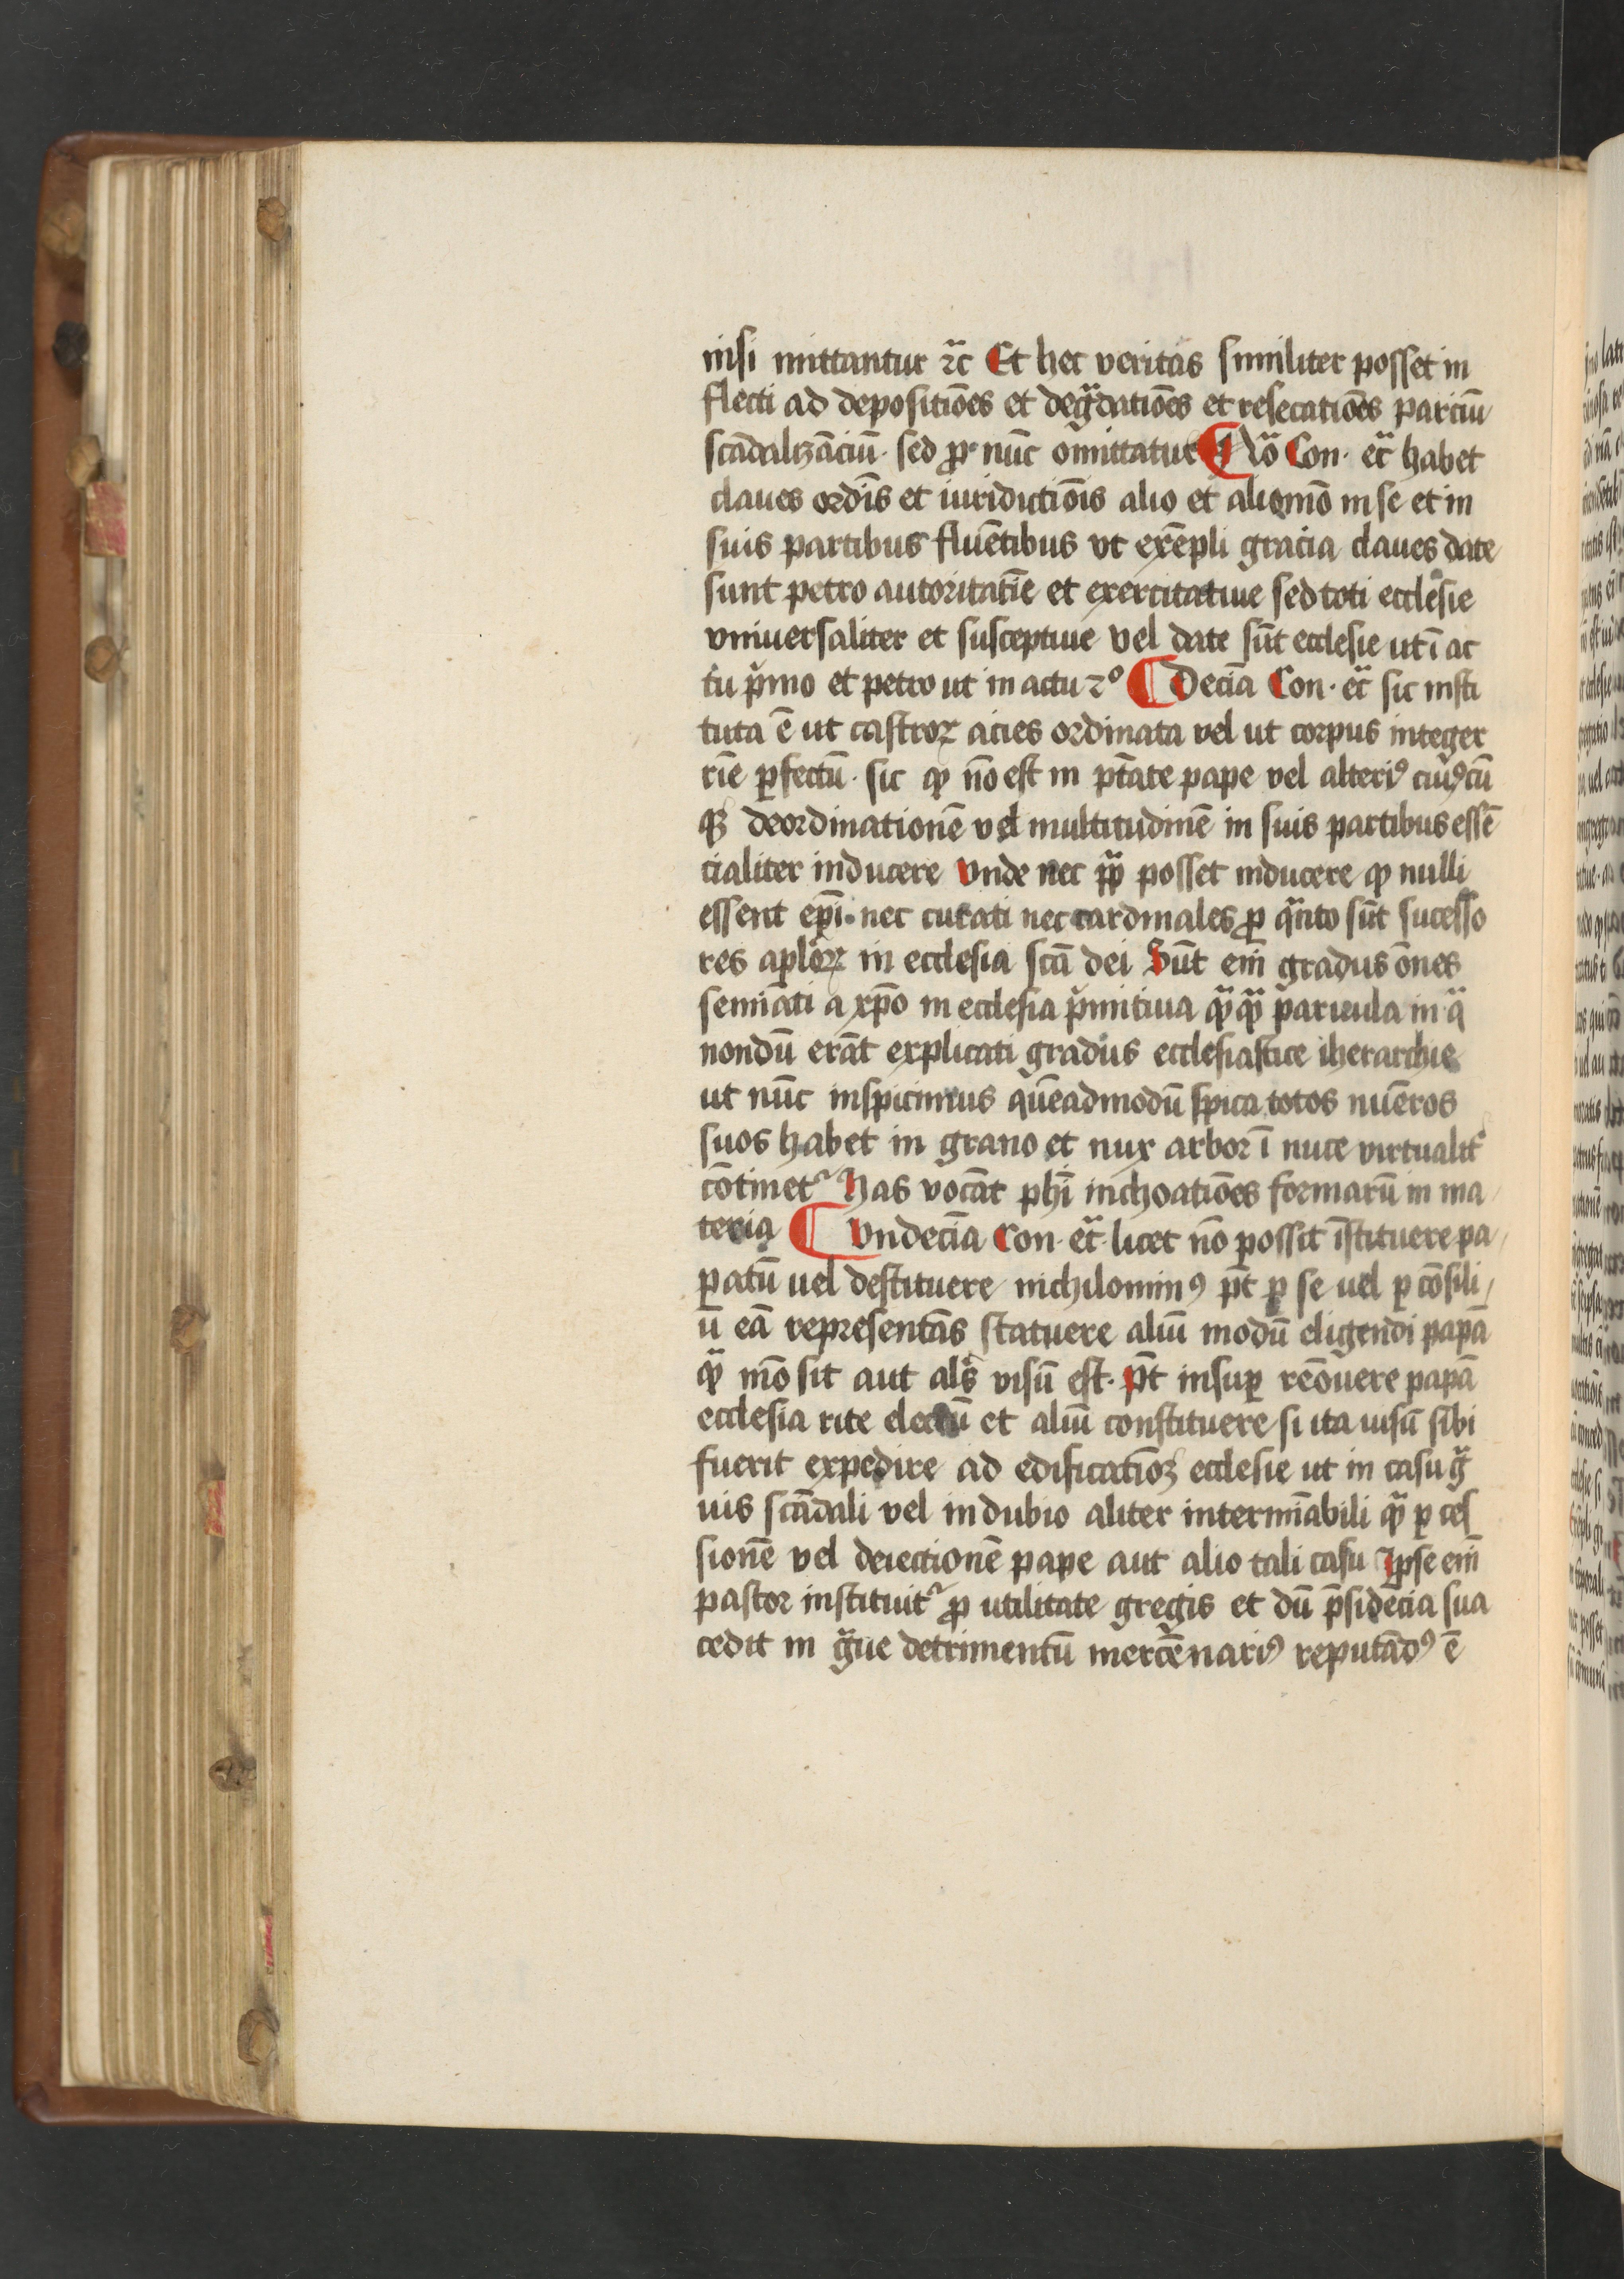 nisi mittantur ⁊c̃ Et hec veritas similiter posset in
flecti ad depositiões et degᷓdatiões et resecatiões parciũ
scãdalizãciũ· sed ꝓ nũc omittatur ¶ Nõ Con· ec̃ habet
claues ordĩs et iuridictiõis alio et aliomõ in se et in
suis partibus fluẽtibus vt exẽpli gracia claues date
sunt petro autoritatĩe et exercitatiue sed toti ecclesie
vniuersaliter et susceptiue vel date sũt ecclesie ut ĩ ac
tu pᷓmo et petro ut in actu 2º ¶ Decĩa Con· ec̃ sic insti
tuta ẽ ut castroꝝ acies ordinata vel ut corpus integer
rĩe ꝑfectũ· sic ꝙ nõ est in ptãte pape vel alteriꝰ cuiꝰcũ
qꝫ deordinationẽ vel multitudinẽ in suis partibus essẽ
cialiter inducere Vnde nec pp̃ posset inducere ꝙ nulli
essent ep̃i· nec curati nec cardinales ꝓ qᷓnto sũt sucesso
res aplõꝝ in ecclesia scã dei Sũt em̃ gradus õnes
semĩati a xp̃o in ecclesia pᷓmitiua qᷓqᷓ paruula in qᷓ
nondũ erãt explicati gradus ecclesiastice iherarchie
ut nũc inspicimus quẽadmodũ spica totos nuẽros
suos habet in grano et nux arbor ĩ nuce virtualit᷑
cõtinet᷑ Has vocãt ph̃i inchoatiões formarũ in ma
teria ¶ Vndecĩa Con· ec̃· licet nõ possit ĩstituere pa
patũ uel destituere nichilominꝰ pt̃ ꝑ se uel ꝑ cõsili
ũ eã representãs statuere aliũ modũ eligendi papã
qᷓ mõ sit aut al̃s visũ est· Pt̃ insuꝑ reõuere papã
ecclesia rite electũ et aliũ constituere si ita uisũ sibi
fuerit expedire ad edificatiõꝫ ecclesie ut in casu gᷓ
uis scãdali vel in dubio aliter intermĩabili qᷓ ꝑ ces
sionẽ vel deiectionẽ pape aut alio tali casu Ipse em̃
pastor instituit᷑ ꝓ utilitate gregis et dũ p̃sidẽcia sua
cedit in gᷓue detrimentũ mercẽnariꝰ reputãdꝰ ẽ